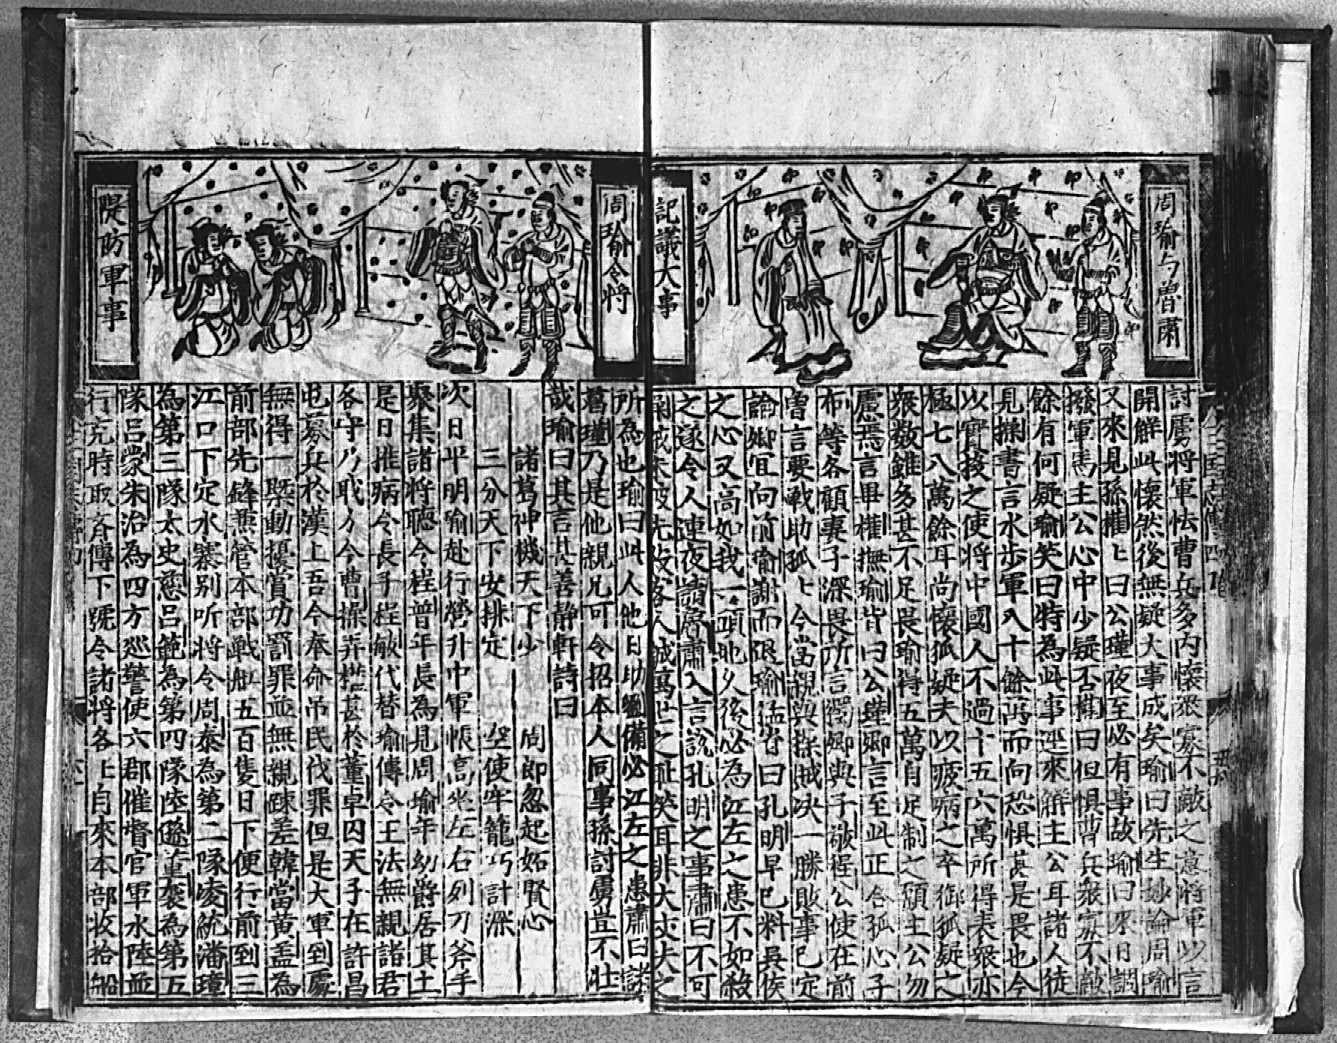 周瑜与曾肅
記議大事
討虜將軍怯曹兵多內懷眾寡不敵之意將軍以言
開解此懷然後無疑大事成矣瑜曰先生妙論周瑜
又來見孫權〻曰公瑾夜至必有事故瑜曰來日調
撥軍馬主公心中少疑否權曰但惧曹兵眾寡不敵
餘有何疑瑜笑曰特為此事逕來解主公耳諸人徒
見操書言水步軍八十餘萬而向恐惧甚是畏也今
以實挍之使將中國人不過十五六萬所得表眾亦
極七八萬餘耳尚懷狐疑夫以疲病之卒御狐疑之
眾数雖多甚不足畏瑜得五萬自足制之願主公勿
慮焉言畢權撫瑜背曰公瑾卿言至此正合孤心子
布等各顧妻子深畏所言獨卿與子敬程公使在前
曾言要戰助孤〻今當親與操賊决一勝敗事已定
論卿宜向前瑜謝而退瑜 曰孔明早已料吳侯
之心又高如我一頭地久後必為江左之患不如殺
之遂令人連夜請魯肅入言說孔明之事肅曰不可
周瑜令將
隄防軍事
所為也瑜曰此人他日助劉備必江左之患肅曰諸
葛瑾乃是他親兄可令招本人同事孫討虜豈不壯
哉瑜曰其言甚善靜軒詩曰
諸葛神機天下少 周郎忽起妬賢心
三分天下安排定 空使牢籠巧計深
次日平明瑜赴行營升中軍帳高坐左右列刀斧手
聚集諸將聽令程普年長為見周瑜年幼爵居其土
是日推病令長子程敏代替瑜傳令王法無親諸君
各守乃職方今曹操弄權甚於董卓囚天子在許昌
屯募兵於漢上吾今奉命吊民伐罪但是大軍到處
無得一槩動擾賞功罰罪並無親疎差韓當黃盖為
前部先鋒兼管本部戰舡五百隻日下便行前到三
江口下定水寨別听將令周泰為第二隊凌統潘璋
為第三隊太史慈呂範為第四隊陸遜董襲為第五
隊呂蒙朱治為四方巡警使六郡催督官軍水陸並
行克時取齊傳下號令諸將各上自來本部收拾船